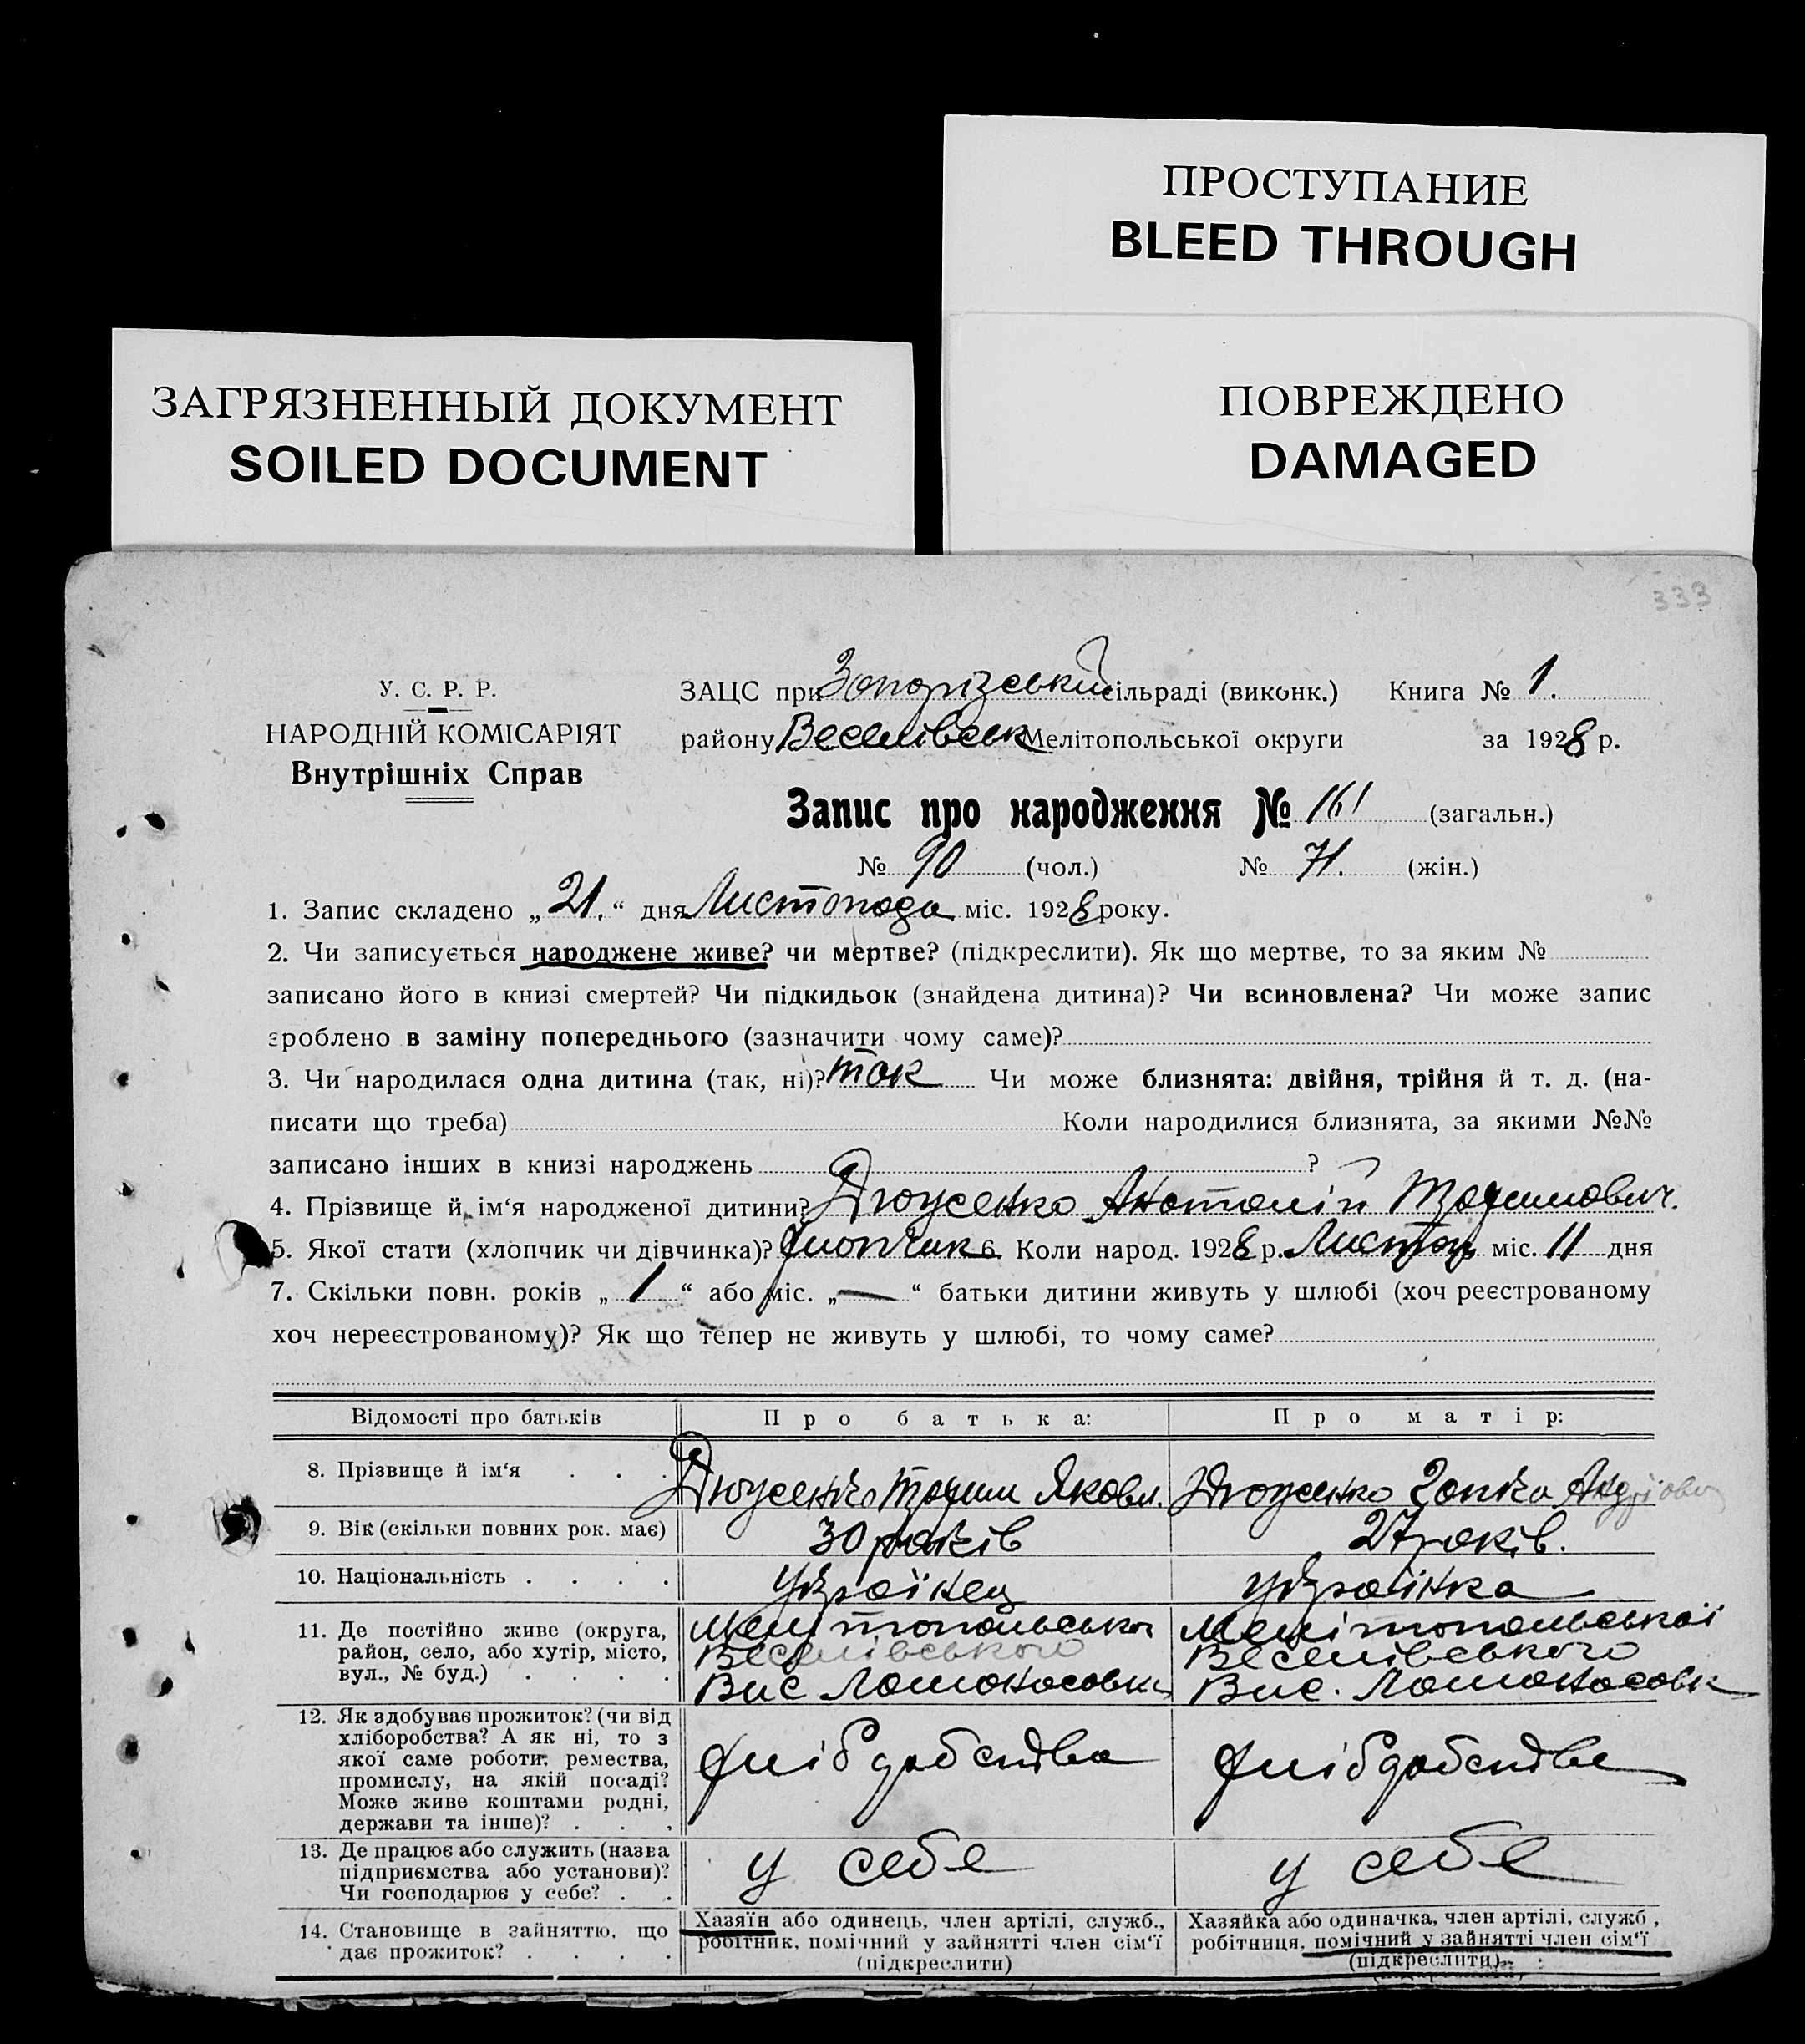 ПРОСТУПАНИЕ
BLEED THROUGH
ЗАГРЯЗНЕННЫЙ ДОКУМЕНТ
SOILED DOCUMENT
ПОВРЕЖДЕНО
DAMAGED
333
У. С. Р. Р.
НАРОДНІЙ КОМІСАРІЯТ
Внутрішніх Справ
ЗАЦС при Запорізській сільраді (виконк.) Книга № 1.
району Веселівськ Мелітопольської округи за 1928 р.
Запис про народження № 161 (загальн.)
№ 90 (чол.) № 71. (жін.)
1. Запис складено „21.“ дня Листопада міс. 1928 року.
2. Чи записується народжене живе? чи мертве? (підкреслити). Як що мертве, то за яким №
записано його в книзі смертей? Чи підкидьок (знайдена дитина)? Чи всиновлена? Чи може запис
зроблено в заміну попереднього (зазначити чому саме)?
3. Чи народилася одна дитина (так, ні)? так Чи може близнята: двійня, трійня й т. д. (на-
писати що треба) Коли народилися близнята, за якими №№
записано інших в книзі народжень ?
4. Прізвище й ім‘я народженої дитини? Анатолій
5. Якої стати (хлопчик чи дівчинка)? хлопчик 6. Коли народ. 1928 р. Листоп міс. 11 дня
7. Скільки повн. років „ 1 “ або міс. „ — “ батьки дитини живуть у шлюбі (хоч реєстрованому
хоч нереєстрованому)? Як що тепер не живуть у шлюбі, то чому саме?
Відомості про батьків Про батька: Про матір:
8. Прізвище й ім‘я . . . Яковл.
9. Вік (скільки повних рок. має) 30 років 27 років.
10. Національність . . . . Українец Українка
11. Де постійно живе (округа,
район, село, або хутір, місто,
вул., № буд.) . . . .
Мелітопольської
Веселівського
Вис Ломоносовка
Мелітопольської
Веселівського
Вис. Ломоносовк
12. Як здобуває прожиток? (чи від
хліборобства? А як ні, то з
якої саме роботи: ремества,
промислу, на якій посаді?
Може живе коштами родні,
держави та інше)? . . .
хлібробства
хлібробства
13. Де працює або служить (назва
підприємства або установи)?
Чи господарює у себе? . .
у себе
у себе
14. Становище в зайняттю, що
дає прожиток? . . . .
Хазяїн або одинець, член артілі, служб.,
робітник, помічний у зайнятті член сім‘ї
(підкреслити)
Хазяйка або одиначка, член артілі, служб.,
робітниця, помічний у зайнятті член сім‘ї
(підкреслити)